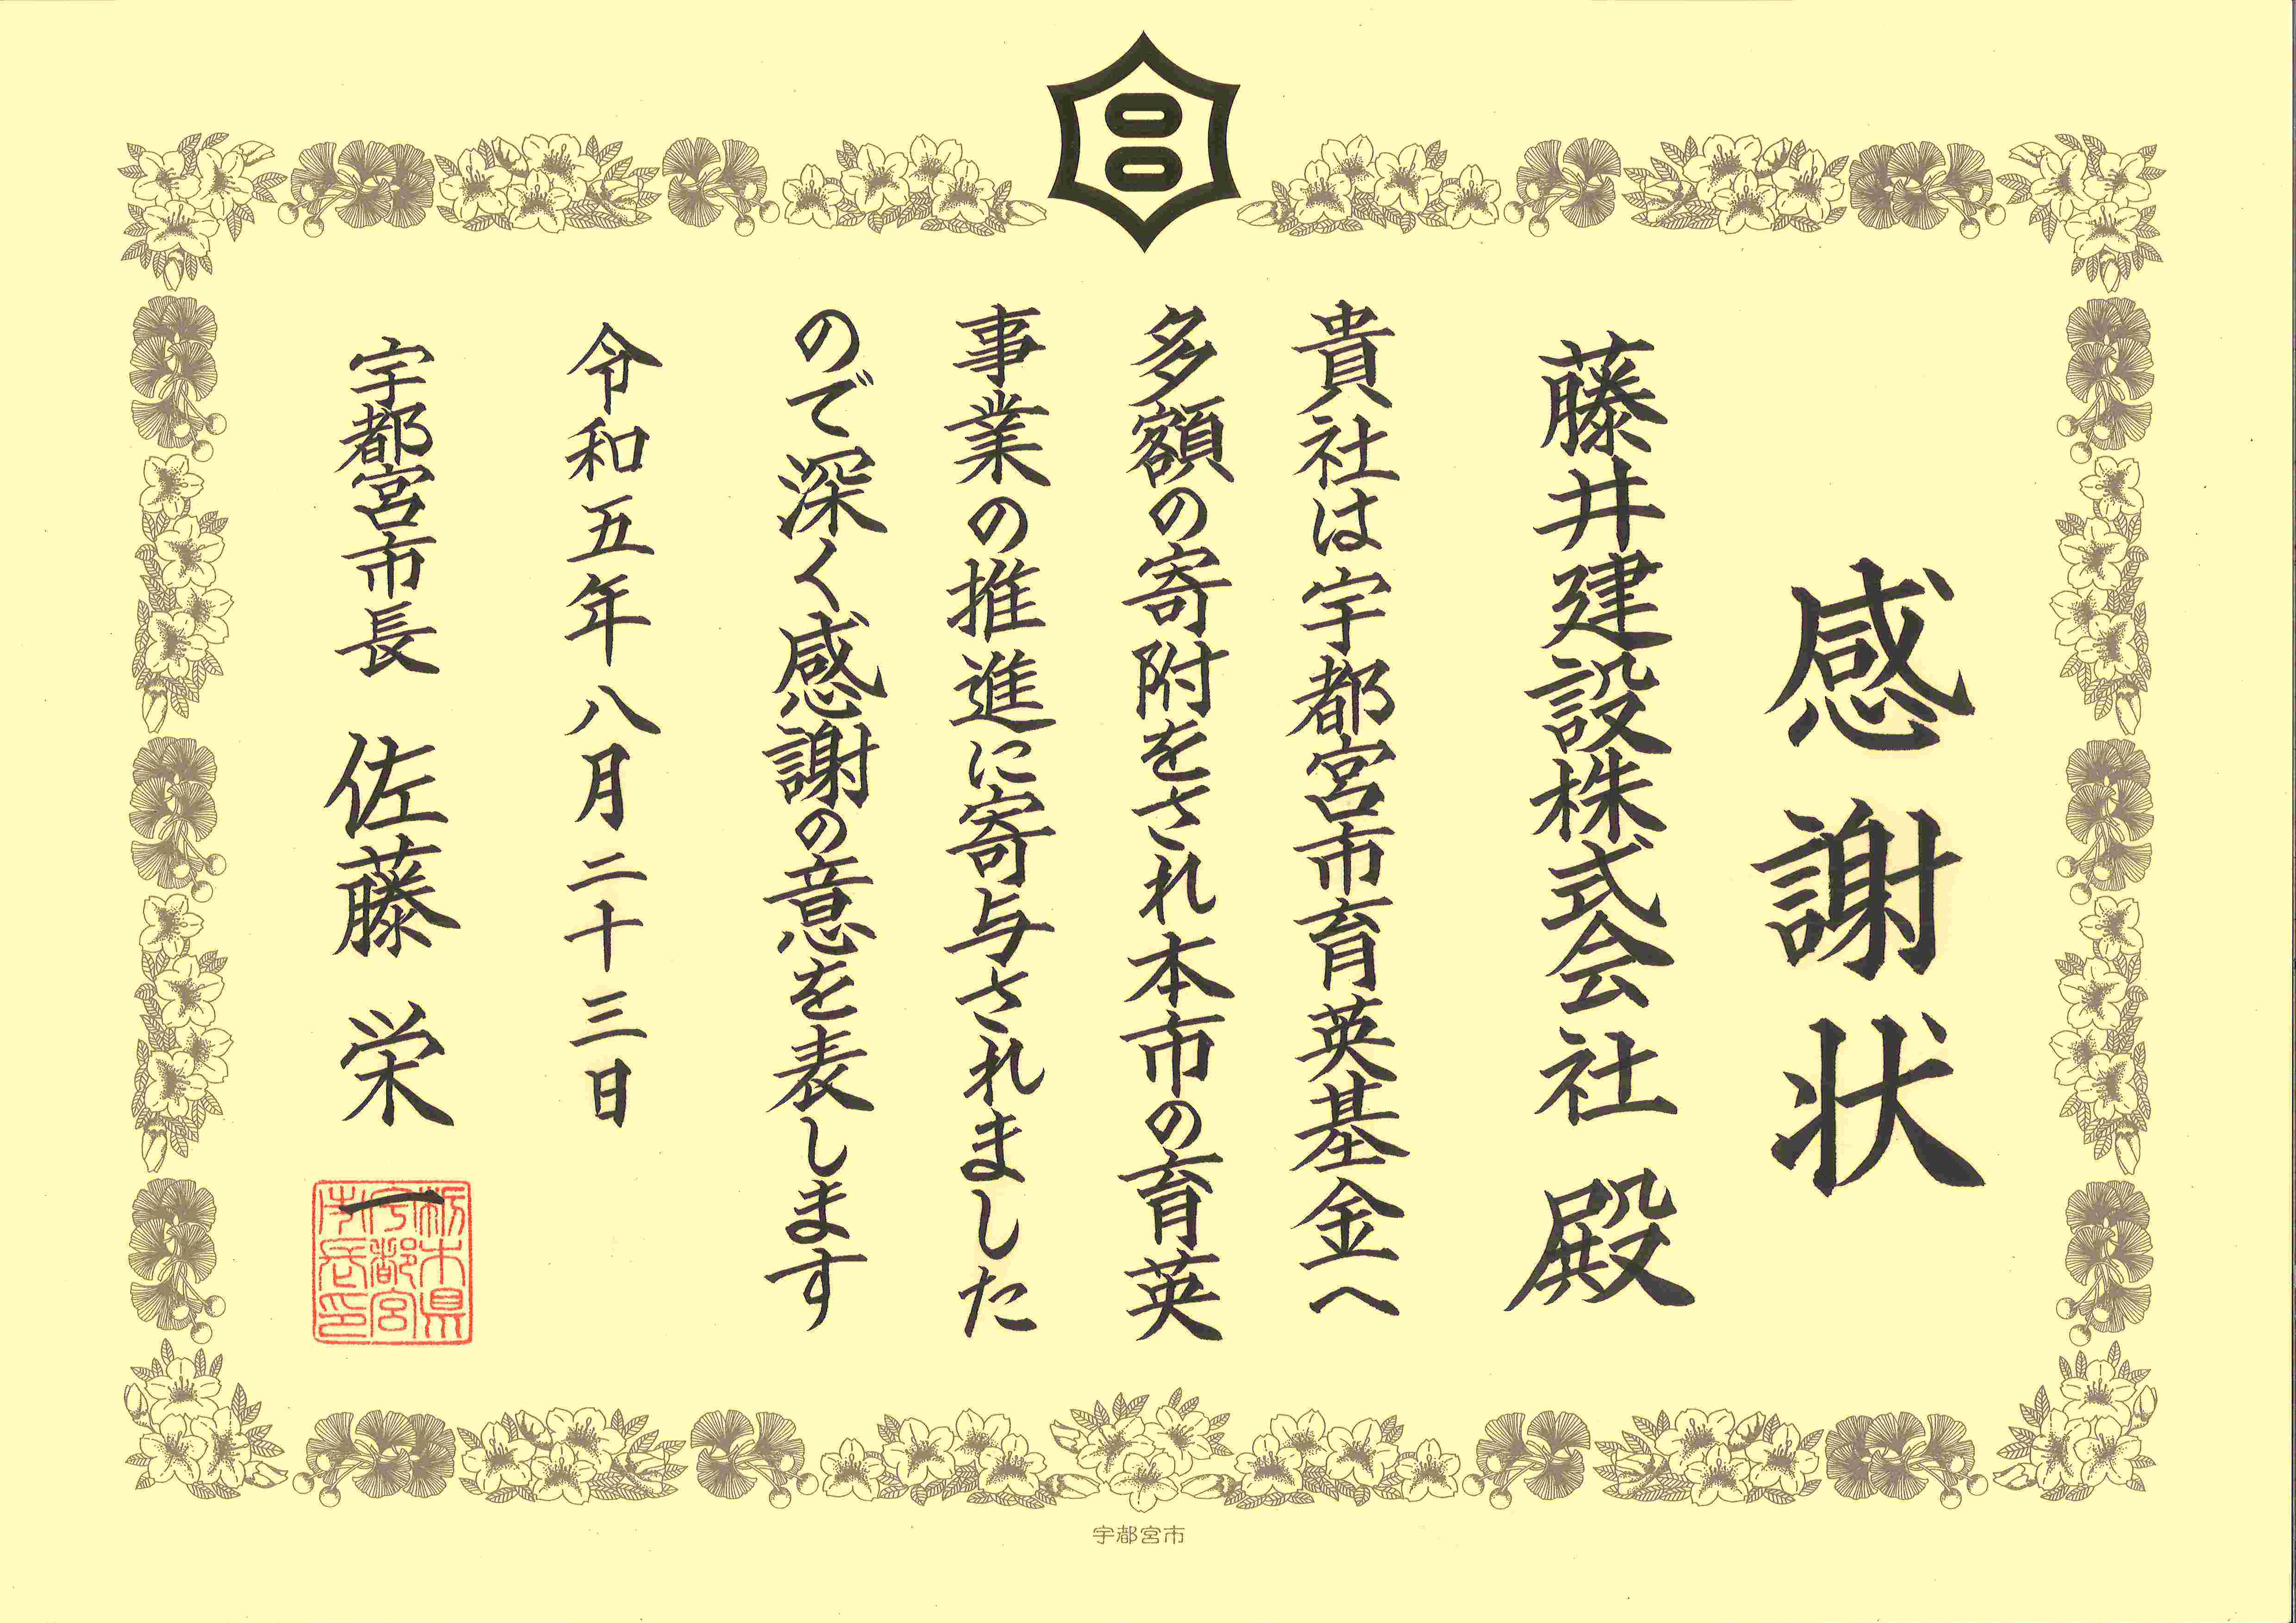 感謝状
藤井建設株式会社 殿
貴社は宇都宮市育英基金へ
多額の寄附をされ本市の育英
事業の推進に寄与されました
ので深く感謝の意を表します
令和五年八月二十三日
宇都宮市長 佐藤栄一
栃木県
宇都宮
市長印
宇都宮市